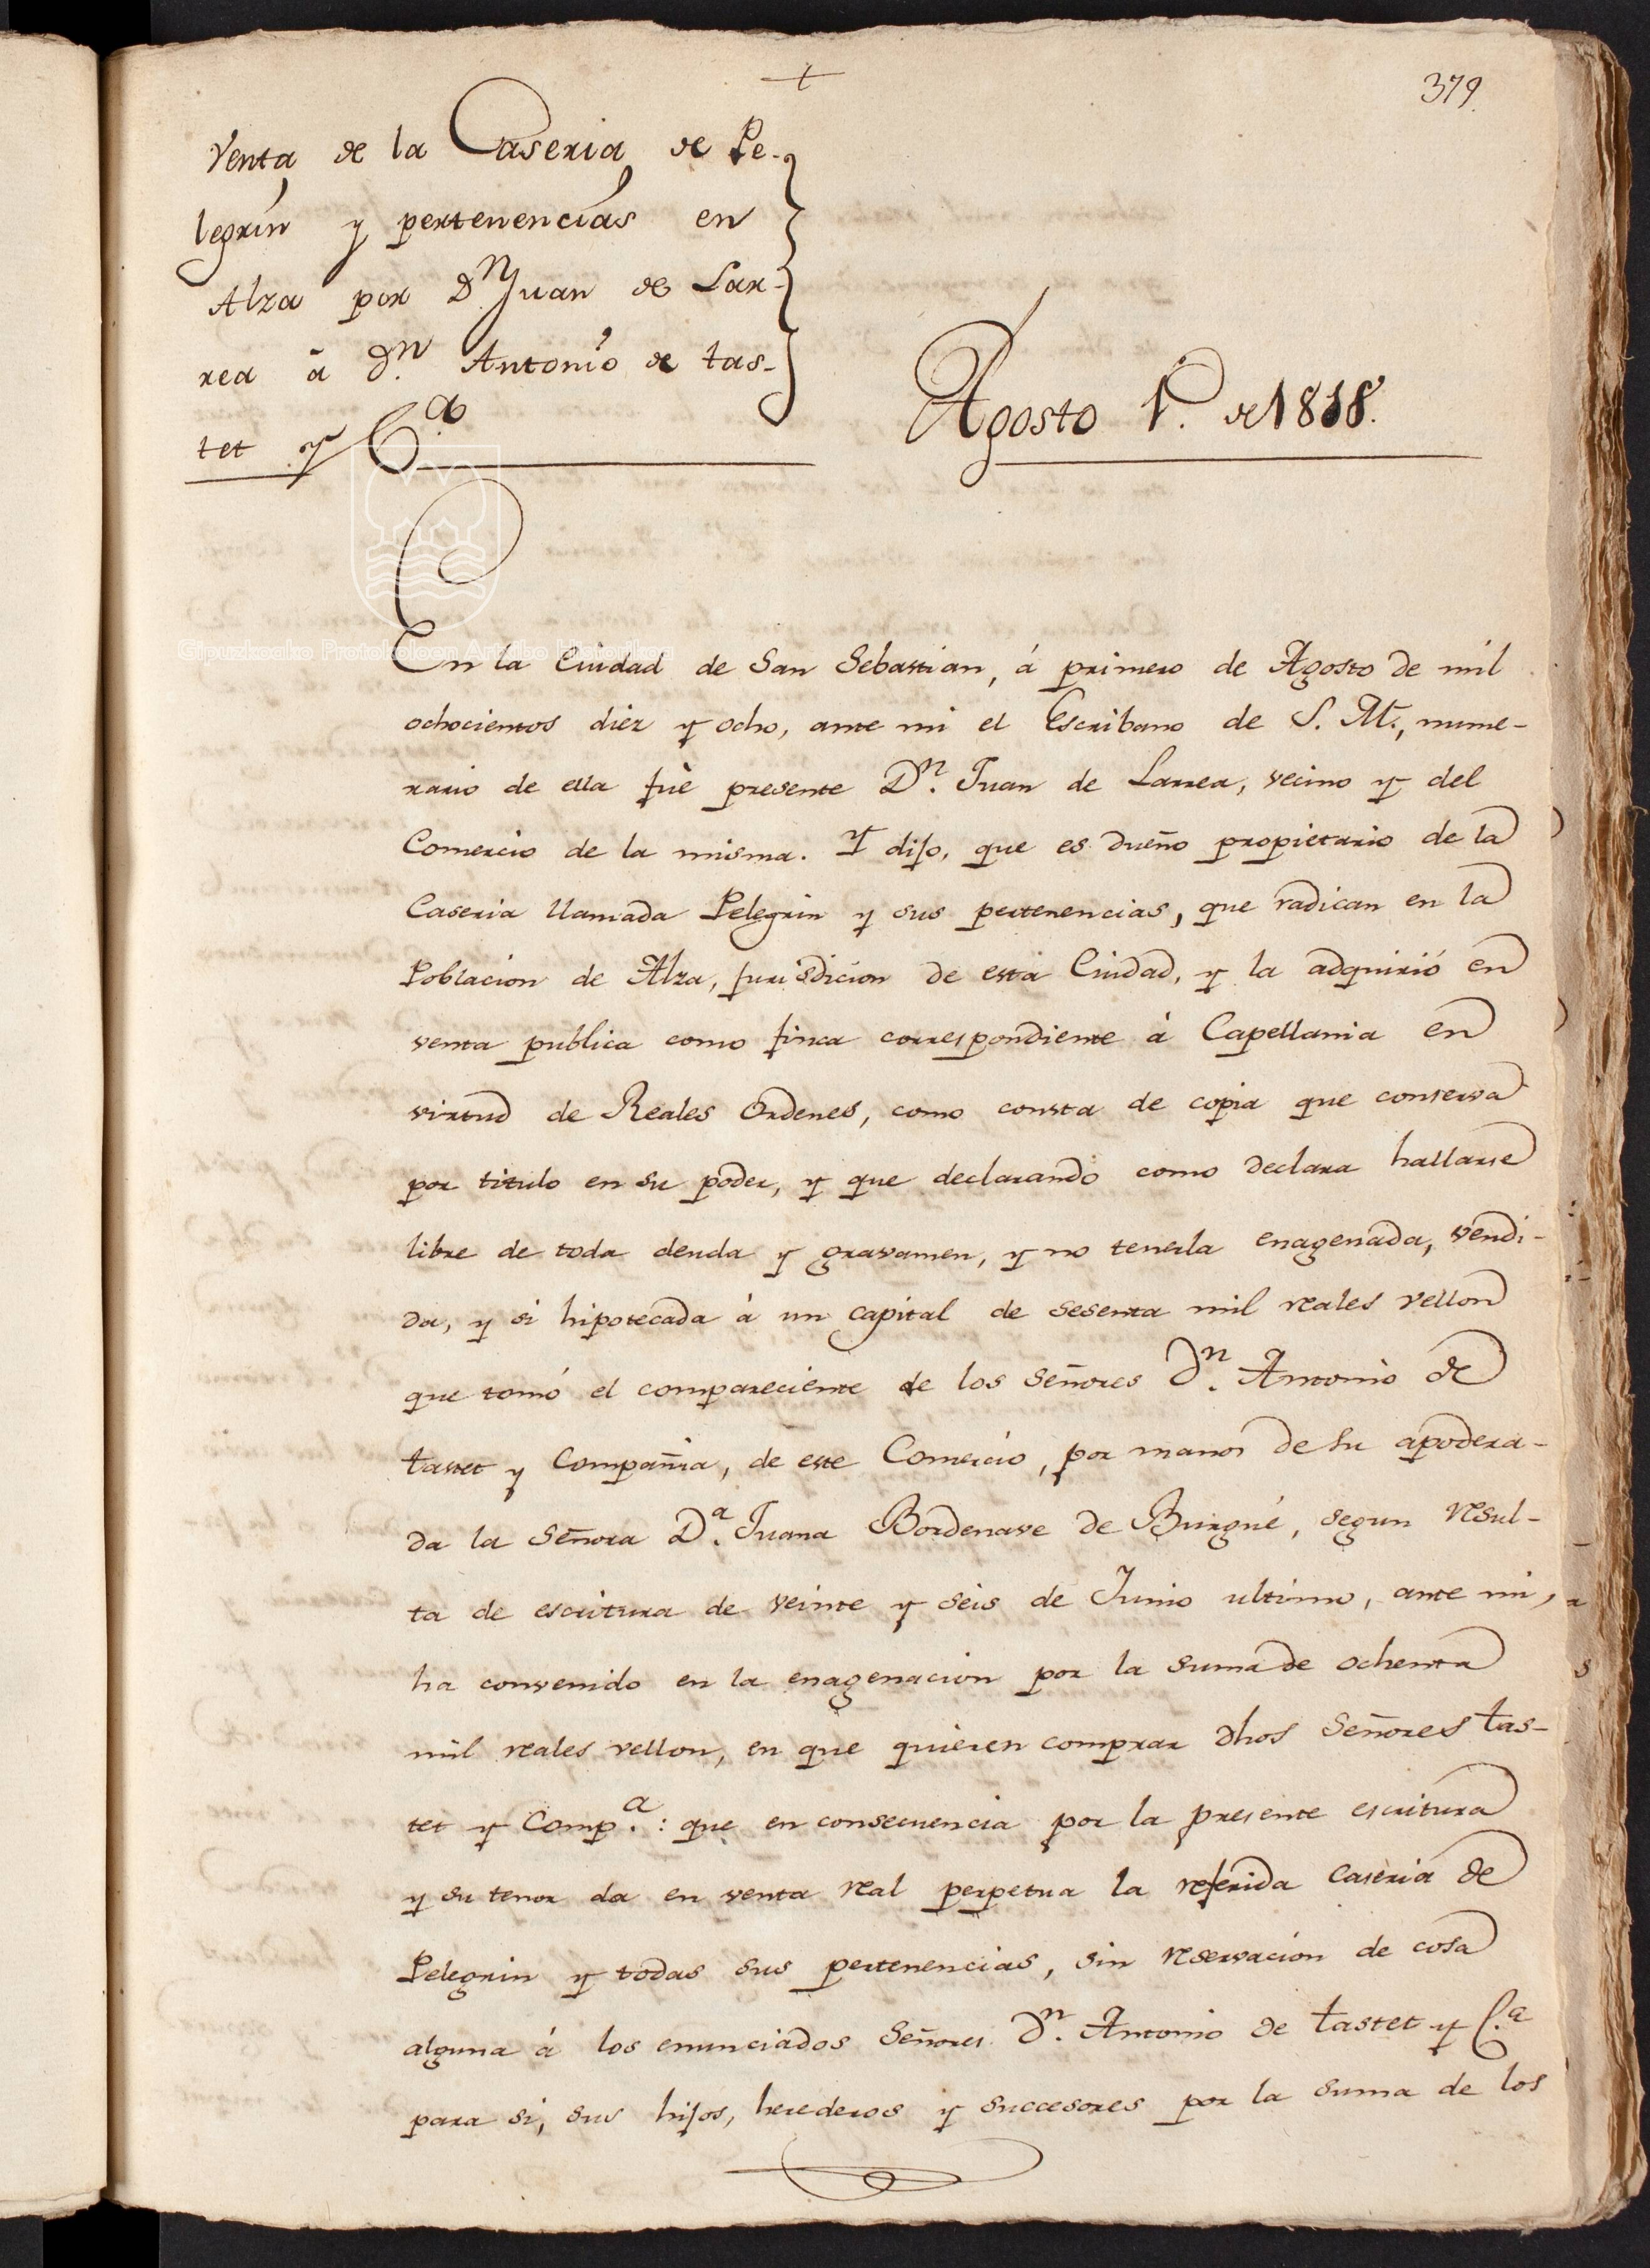 379.
Venta de la Caseria de Pe-
legrin y pertenencias en
Alza por Dn Juan de Lar-
rea á Dn. Antonio de tas-
tet y C.a
Agosto 1.º de 1818.
Gipuzkoako Protokoloen Artxibo Historikoa
En la Ciudad de San Sebastian, á primero de Agosto de mil
ochocientos diez y ocho, ante mi el Escribano de S. M., nume-
rario de ella fué presente Dn. Juan de Larrea, vecino y del
Comercio de la misma. Y dijo, que es dueño propietario de la
Caseria llamada Pelegrin y sus pertenencias, que radican en la
Poblacion de Alza, jurisdicion de esta Ciudad, y la adquirió en
venta publica como finca correspondiente á Capellania en
virtud de Reales Ordenes, como consta de copia que conserva
por titulo en su poder, y que declarando como declara hallarse
libre de toda deuda y gravamen, y no tenerla enagenada, vendi-
da, y si hipotecada á un capital de sesenta mil reales vellon
que tomó el compareciente de los Señores Dn. Antonio de
tastet y Compañia, de este Comercio, por manos de su apodera-
da la Señora D.a Juana Bordenave de Burgué, segun resul-
ta de escritura de veinte y seis de Junio ultimo, ante mi,
ha convenido en la enagenacion por la suma de ochenta
mil reales vellon, en que quieren comprar dhos Señores tas-
tet y Comp.a: que en consecuencia por la presente escritura
y su tenor da en venta real perpetua la referida Caseria de
Pelegrin y todas sus pertenencias, sin reservacion de cosa
alguna á los enunciados Señores Dn. Antonio de tastet y C.a
para si, sus hijos, herederos y succesores por la suma de los